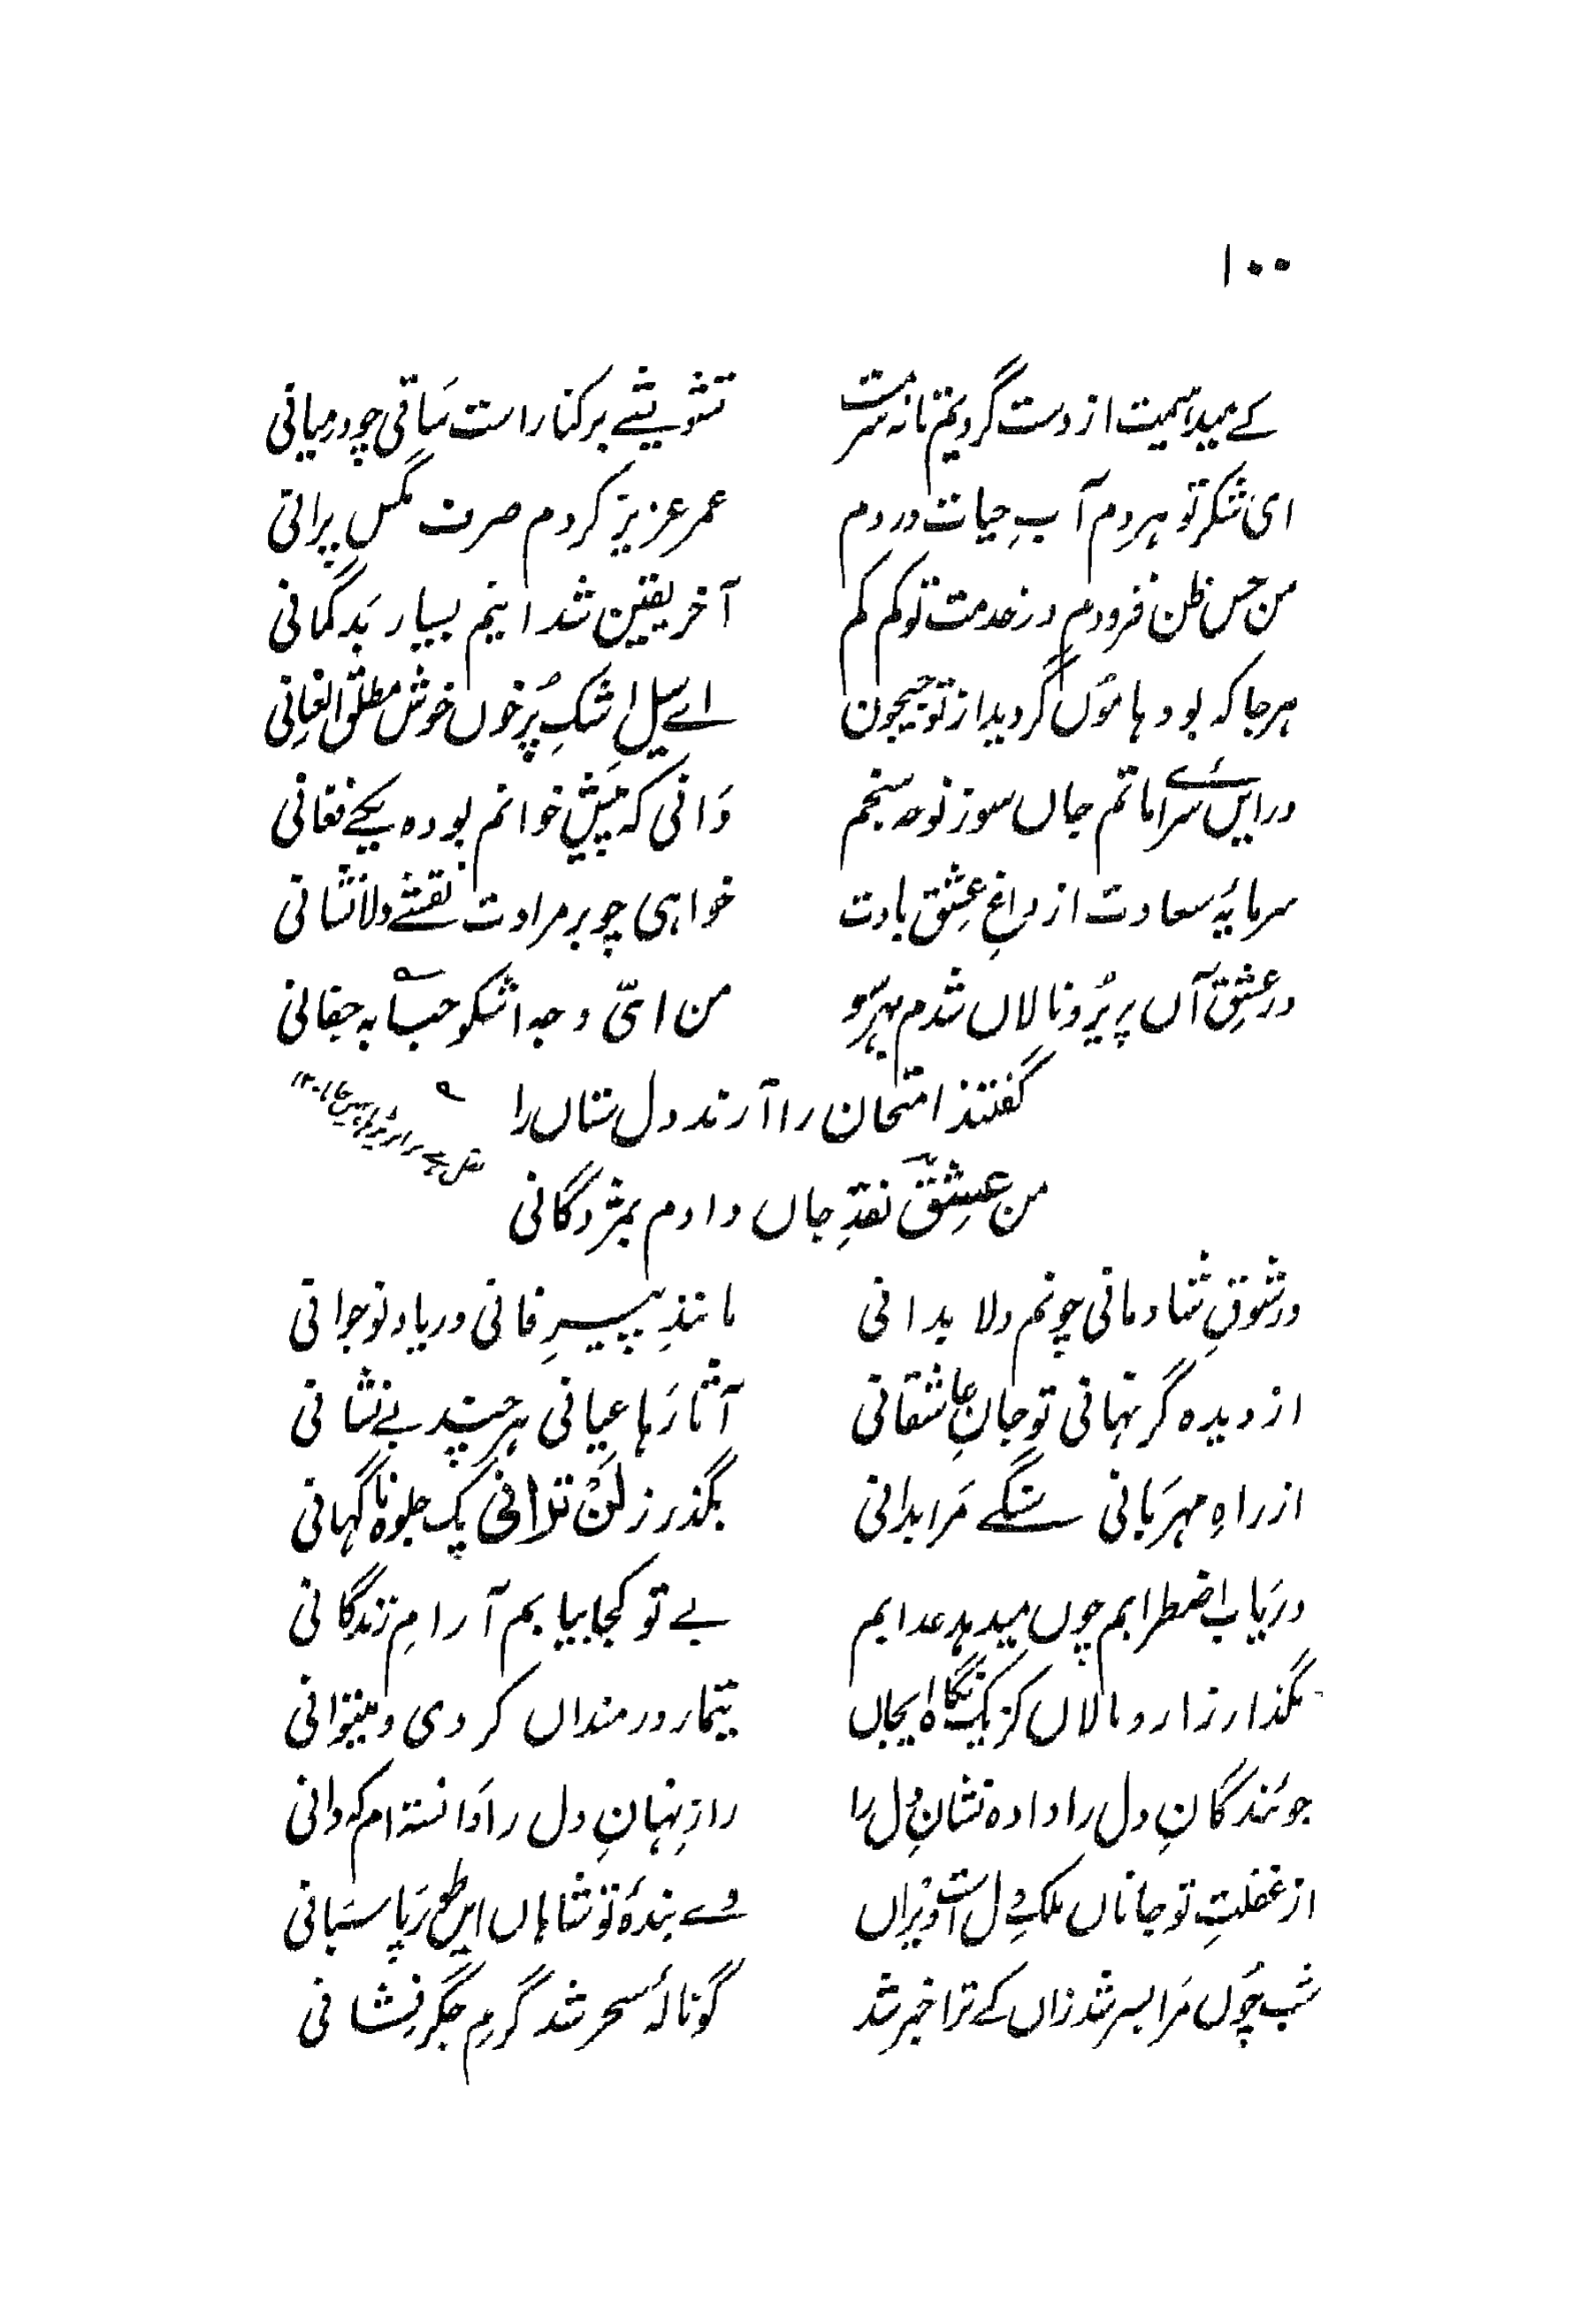 ۱۰۰
کے میدا ہمیت از دست گر دیتم تا نہ سرمست تشویشے برکنار است ساقی چو درمیانی
ای شکر تو ہر دم آبِ حیات در دم عمر عزیز کردم صرف مگس پرانی
من حسن ظن فزودم در خدمت تو کم کم آخر یقین شد اینم بسیار بدگمانی
ہر جا کہ بود ہاموں گردید از تو جیجون اے سیلِ اشکِ پُرخوں خوش مطلق العنانی
در ایں سرائے ماتم جاں سوز نوحہ سنجم دانی کہ پیش خوانم بودہ یکے فغانی
سرمایۂ سعادت از داغِ عشق بادت خواہی چو بر مرادت نقشے دلا نشانی
در عشقِ آں پریرُو نالاں شدم بہر سو من ایّ وجہ اشکو حبابہ جفانی
گفتند امتحان را آرند دل ستاں را
من عشق نقدِ جاں دادم بمژدگانی
در شوقِ شادمانی چونم دلا بدانی مانندِ پیرِ فانی در یاد نوجوانی
از دیدہ گر نہانی تو جانِ عاشقانی آثارہا عیانی ہر چند بے نشانی
از راہِ مہربانی سنگے مرا بدانی بگذر ز لَنْ ترانی یک جلوہ ناگہانی
دریاب اضطرابم چوں میدہد عدایم بے تو کجا بیابم آرامِ زندگانی
مگذار زار و نالاں کز یک نگاہ ایجاں تیمار دردمنداں کردی و میتوانی
جوئندگانِ دل را دادہ نشانِ دل را رازِ نہانِ دل را دانستہ ام کہ دانی
از غفلتِ تو جاناں ملکِ دل است ویراں وے بندۂ تو شاہاں ایں طور پاسبانی
شب چوں مرا بسر شد زاں کے ترا خبر شد گو نالۂ سحر شد گرمِ جگر فشانی